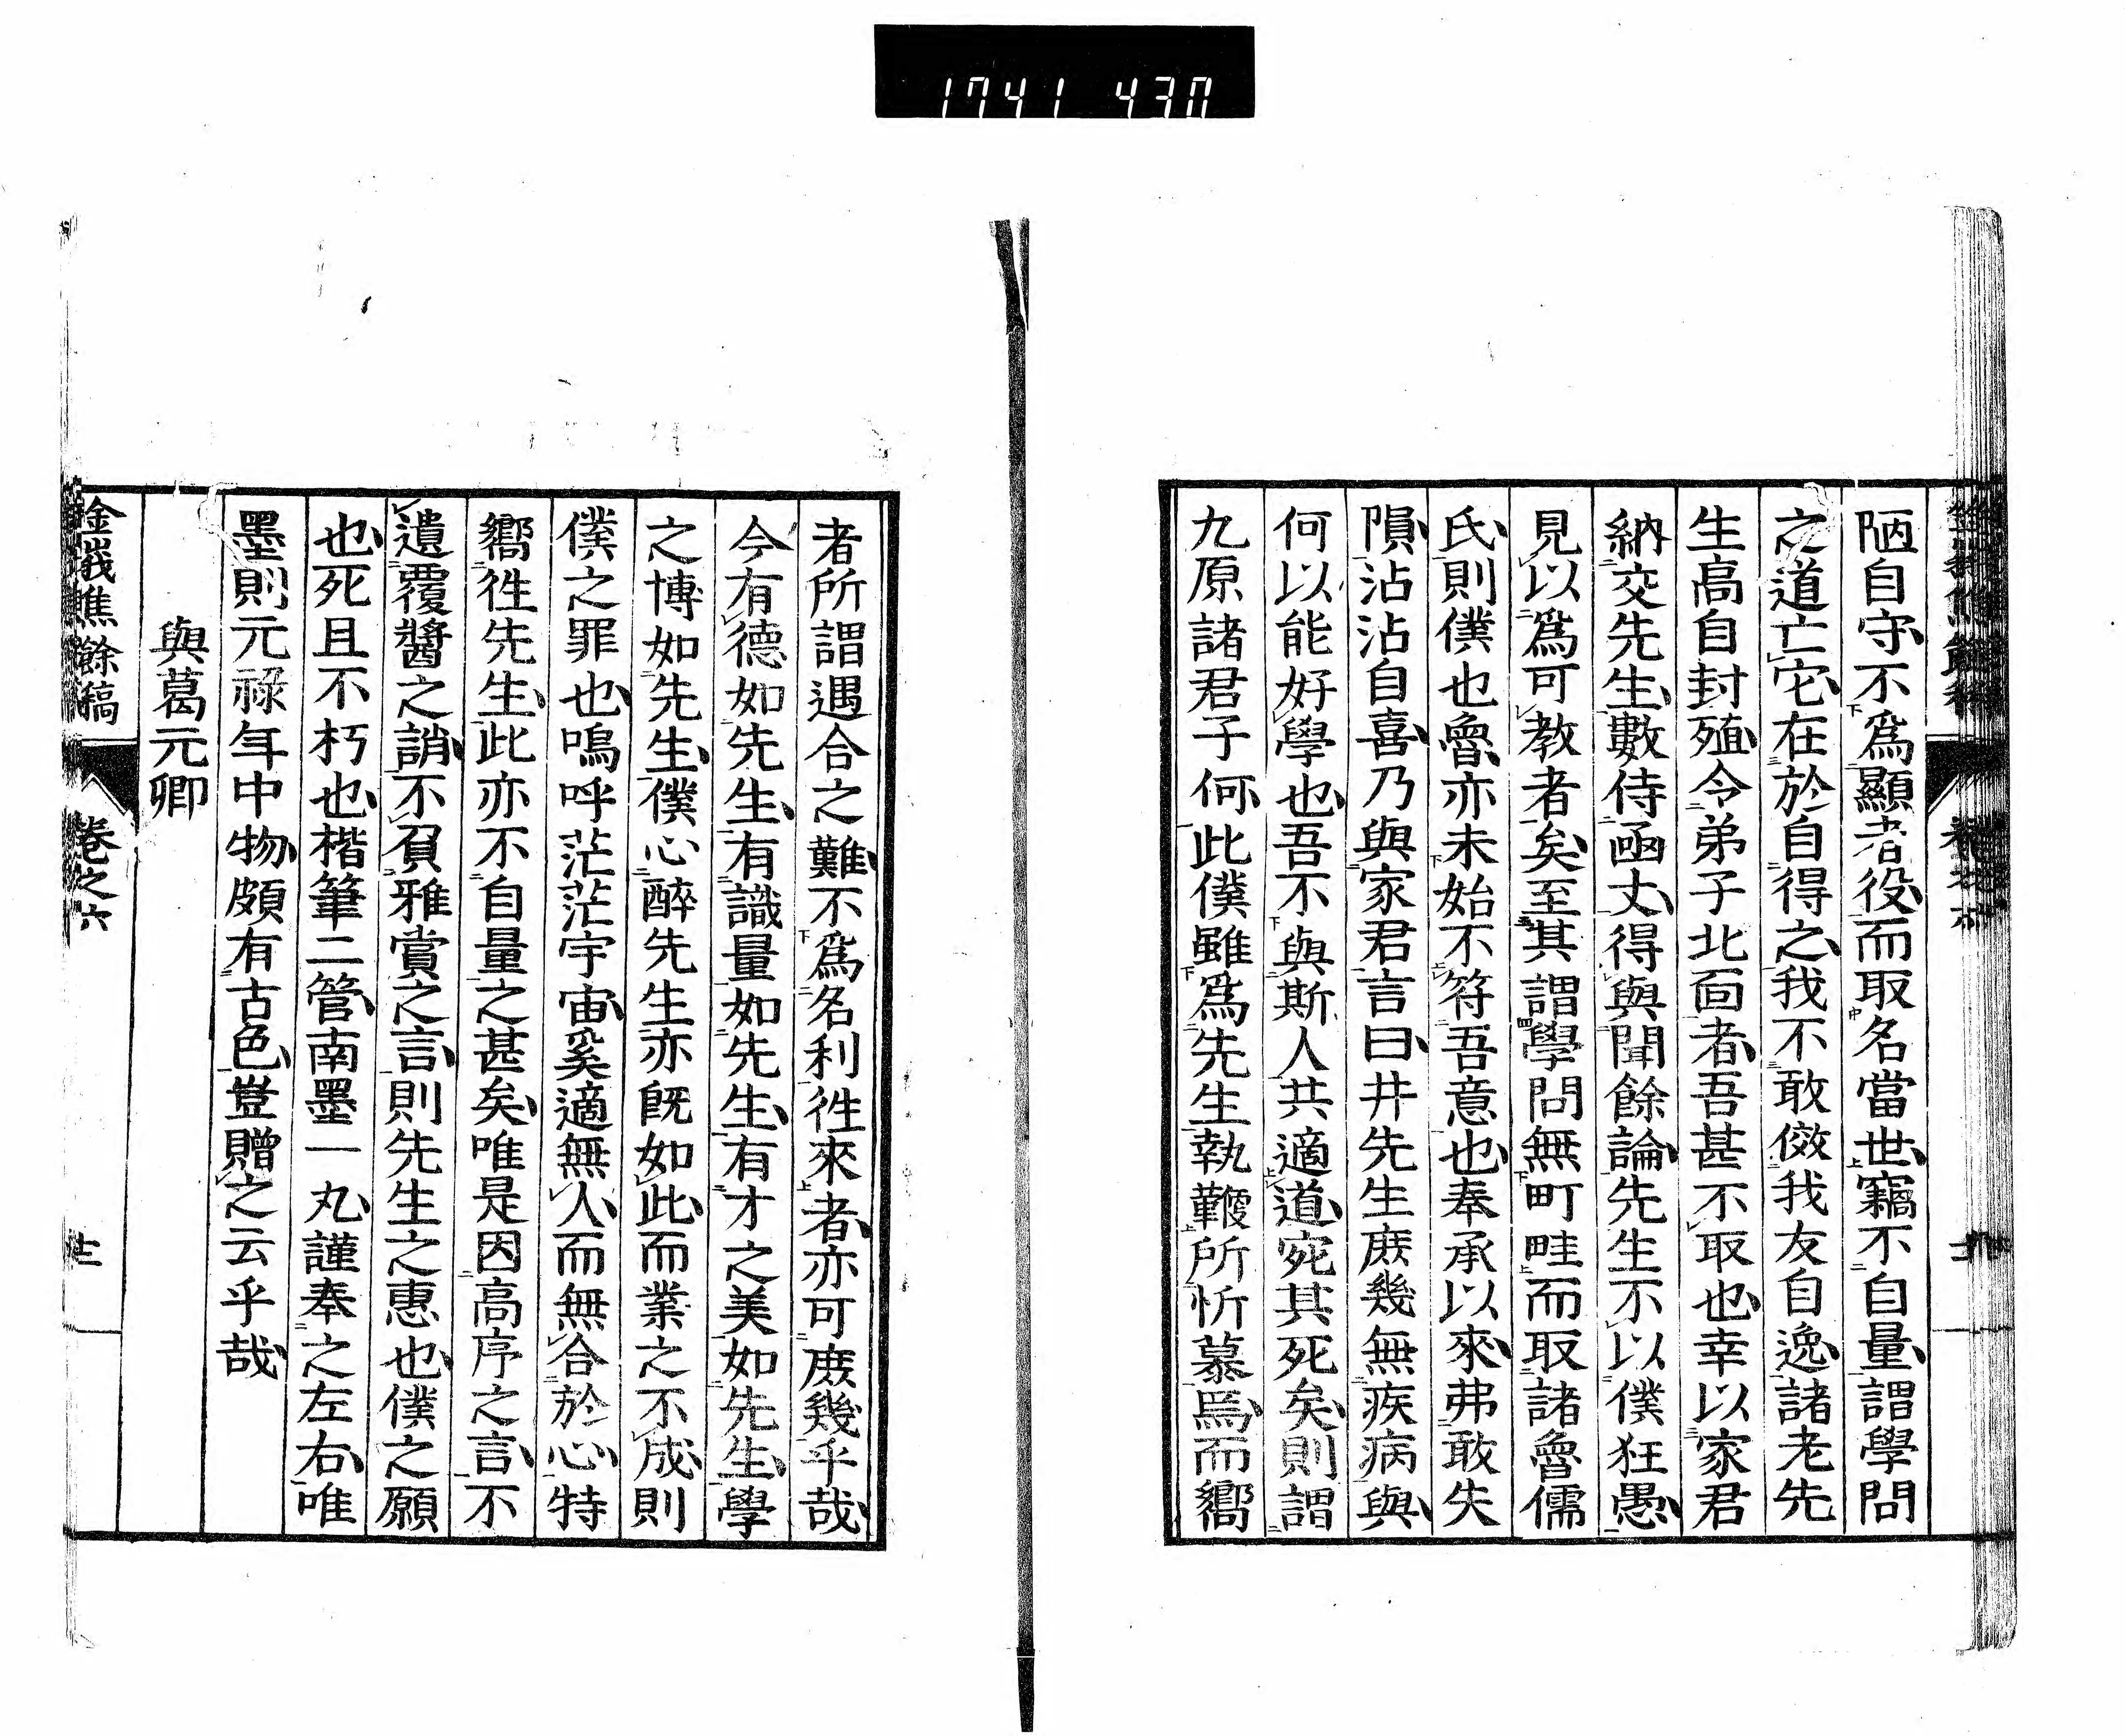 1741 430
陋自守不爲顯者役而取名當世竊不自量謂學問
之道亡它在於自得之我不敢傚我友自逸諸老先
生高自封殖令弟子北面者吾甚不取也幸以家君
納交先生數侍函丈得與聞餘論先生不以僕狂愚
見以爲可教者矣至其謂學問無町畦而取諸魯儒
氏則僕也魯亦未始不符吾意也奉承以來弗敢失
隕沾沾自喜乃與家君言曰井先生庶幾無疾病與
何以能好學也吾不與斯人共適道宛其死矣則謂
九原諸君子何此僕雖爲先生執鞭所忻慕焉而嚮
者所謂遇合之難不爲名利徃來者亦可庶幾乎哉
今有德如先生有識量如先生有才之美如先生學
之博如先生僕心醉先生亦既如此而業之不成則
僕之罪也嗚呼茫茫宇宙奚適無人而無合於心特
嚮徃先生此亦不自量之甚矣唯是因高序之言不
遺覆醬之誚不負雅賞之言則先生之惠也僕之願
也死且不朽也楷筆二管南墨一丸謹奉之左右唯
墨則元祿年中物頗有古色豈贈之云乎哉
與葛元卿
金峩焦餘稿 卷之六